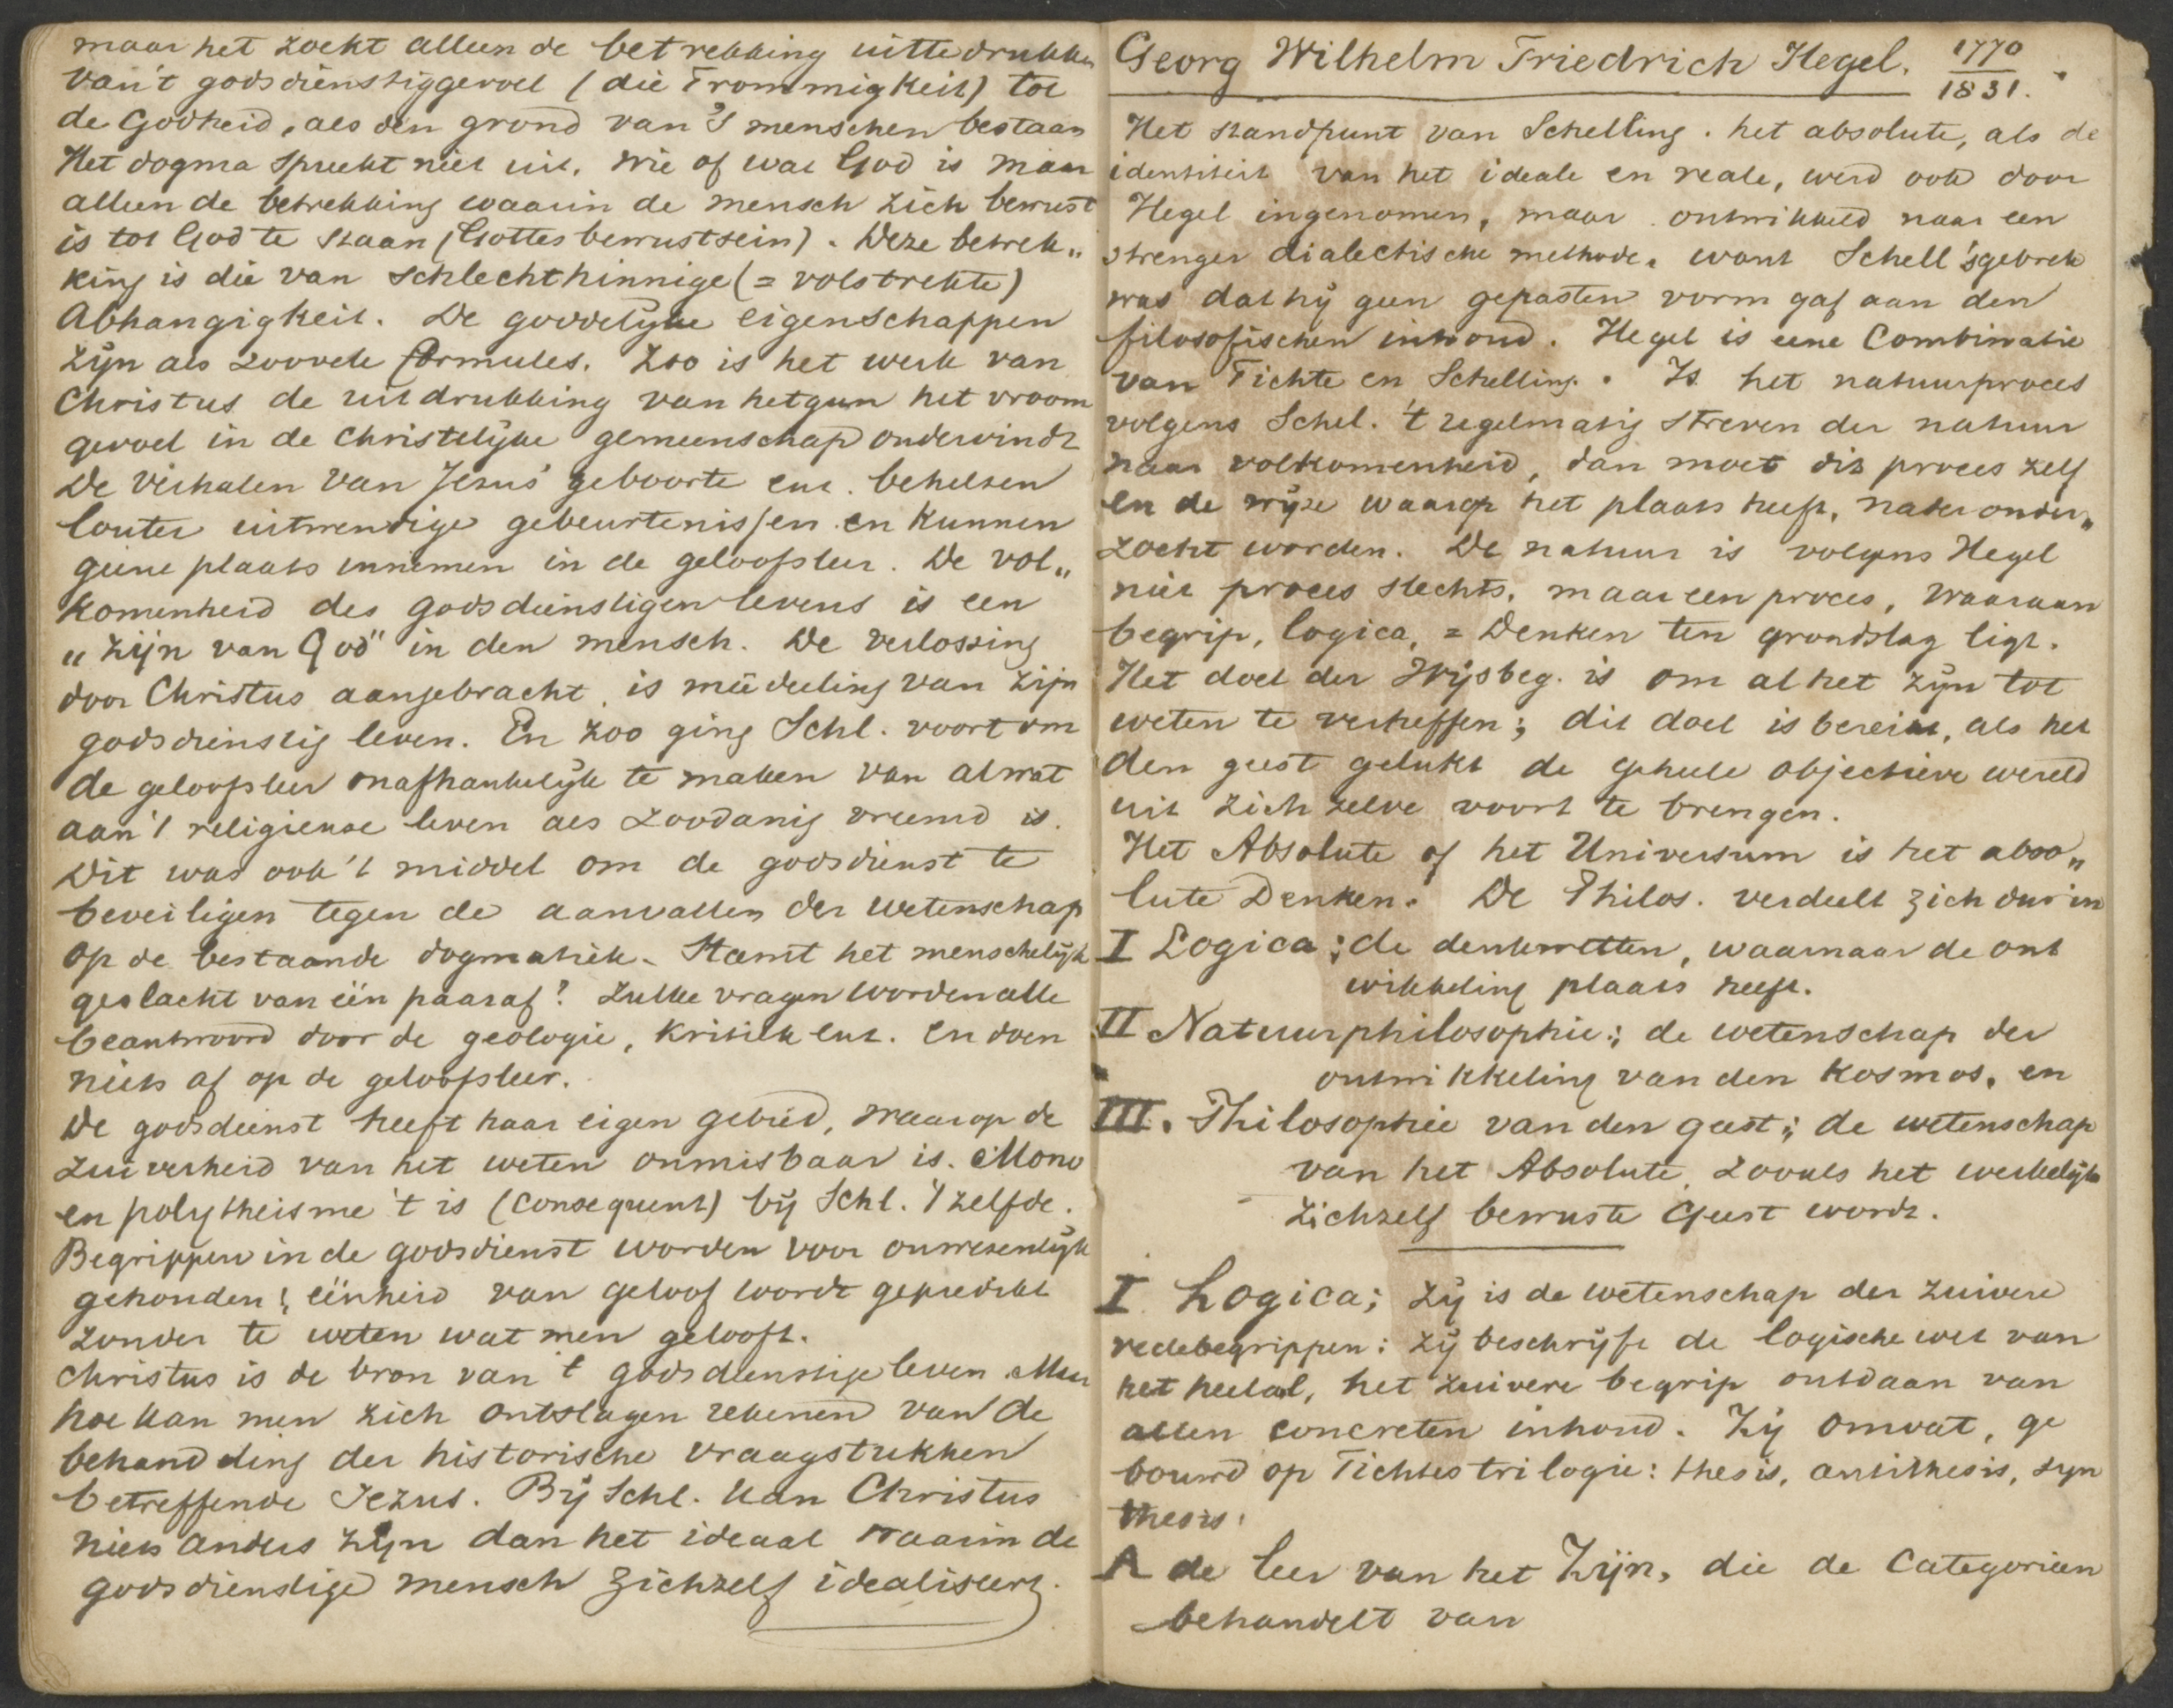 maar het zoekt alleen de betrekking uittedrukken
van 't godsdienstiggevoel (die Frommigkeit) tot
de Godheid, als den grond van 's menschen bestaan
Het dogma spreekt niet uit, wie of wat God is maar
alleen de betrekking waarin de mensch zich bewust
is tot God te staan (Gottesbewustsein). Deze betrek„
king is die van schlechthinnige (= volstrekte)
Abhangigkeit. De goddelyke eigenschappen
zyn als zoovele formules. Zoo is het werk van
Christus de uitdrukking van hetgeen het vroom
gevoel in de christelyke gemeenschap ondervindt
De verhalen van Jezus' geboorte enz. behelzen
louter uitwendige gebeurtenissen en kunnen
geene plaats innemen in de geloofsleer. De vol„
komenheid des godsdienstigen levens is een
„zijn van God" in den mensch. De verlossing
door Christus aangebracht is mededeeling van zijn
godsdienstig leven. En zoo ging Schl. voort om
de geloofsleer onafhankelyk te maken van al wat
aan 't religieuse leven als zoodanig vreemd is.
Dit was ook 't middel om de godsdienst te
beveiligen tegen de aanvallen der wetenschap
op de bestaande dogmatiek. Stamt het menschelyk
geslacht van één paar af? Zulke vragen worden alle
beantwoord door de geologie, kritiek enz. en doen
niets af op de geloofsleer.
De godsdienst heeft haar eigen gebied, waarop de
zuiverheid van het weten onmisbaar is. Mono
en polytheisme 't is (consequent) by Schl. 't zelfde.
Begrippen in de godsdienst worden voor onwezenlyk
gehouden; éénheid van geloof wordt gepredikt
zonder te weten wat men gelooft.
Christus is de bron van 't godsdienstige leven. Maar
hoe kan men zich ontslagen rekenen van de
behandeling der historische vraagstukken
betreffende Jezus. By Schl. kan Christus
niets anders zyn dan het ideaal waarin de
godsdienstige mensch zichzelf idealiseert.
Georg Wilhelm Friedrich Hegel. 1770
1831.
Het standpunt van Schelling. het absolute, als de
identiteit van het ideale en reale, werd ook door
Hegel ingenomen, maar ontwikkeld naar een
strenger dialectische methode, want Schell's gebrek
was dat hy geen gepasten vorm gaf aan den
filosofischen inhoud. Hegel is eene Combinatie
van Fichte en Schelling. Is het natuurproces
volgens Schel. 't regelmatig streven der natuur
naar volkomenheid, dan moet dit proces zelf
en de wyze waarop het plaats heeft, nader onder„
zocht worden. De natuur is volgens Hegel
niet proces slechts, maar een proces, waaraan
begrip, logica, = Denken ten grondslag ligt.
Het doel der Wysbeg. is om al het zyn tot
weten te verheffen; dit doel is bereikt, als het
den geest gelukt de geheele objectieve wereld
uit zich zelve voort te brengen.
Het Absolute of het Universum is het abso„
lute Denken. De Philos. verdeelt zich dus in
I Logica; de denkwetten, waarnaar de ont
wikkeling plaats heeft.
II Natuurphilosophie; de wetenschap der
ontwikkeling van den kosmos, en
III. Philosophie van den geest; de wetenschap
van het Absolute, zooals het werkelyk
zichzelf bewuste Geest wordt.
I Logica; zy is de wetenschap der zuivere
redebegrippen: zy beschryft de logische wet van
het heelal, het zuivere begrip ontdaan van
allen concreten inhoud. Zy omvat, ge
bouwd op Fichtes trilogie: thesis, antithesis, syn
thesis:
A de leer van het Zijn, die de Categorieen
behandelt van